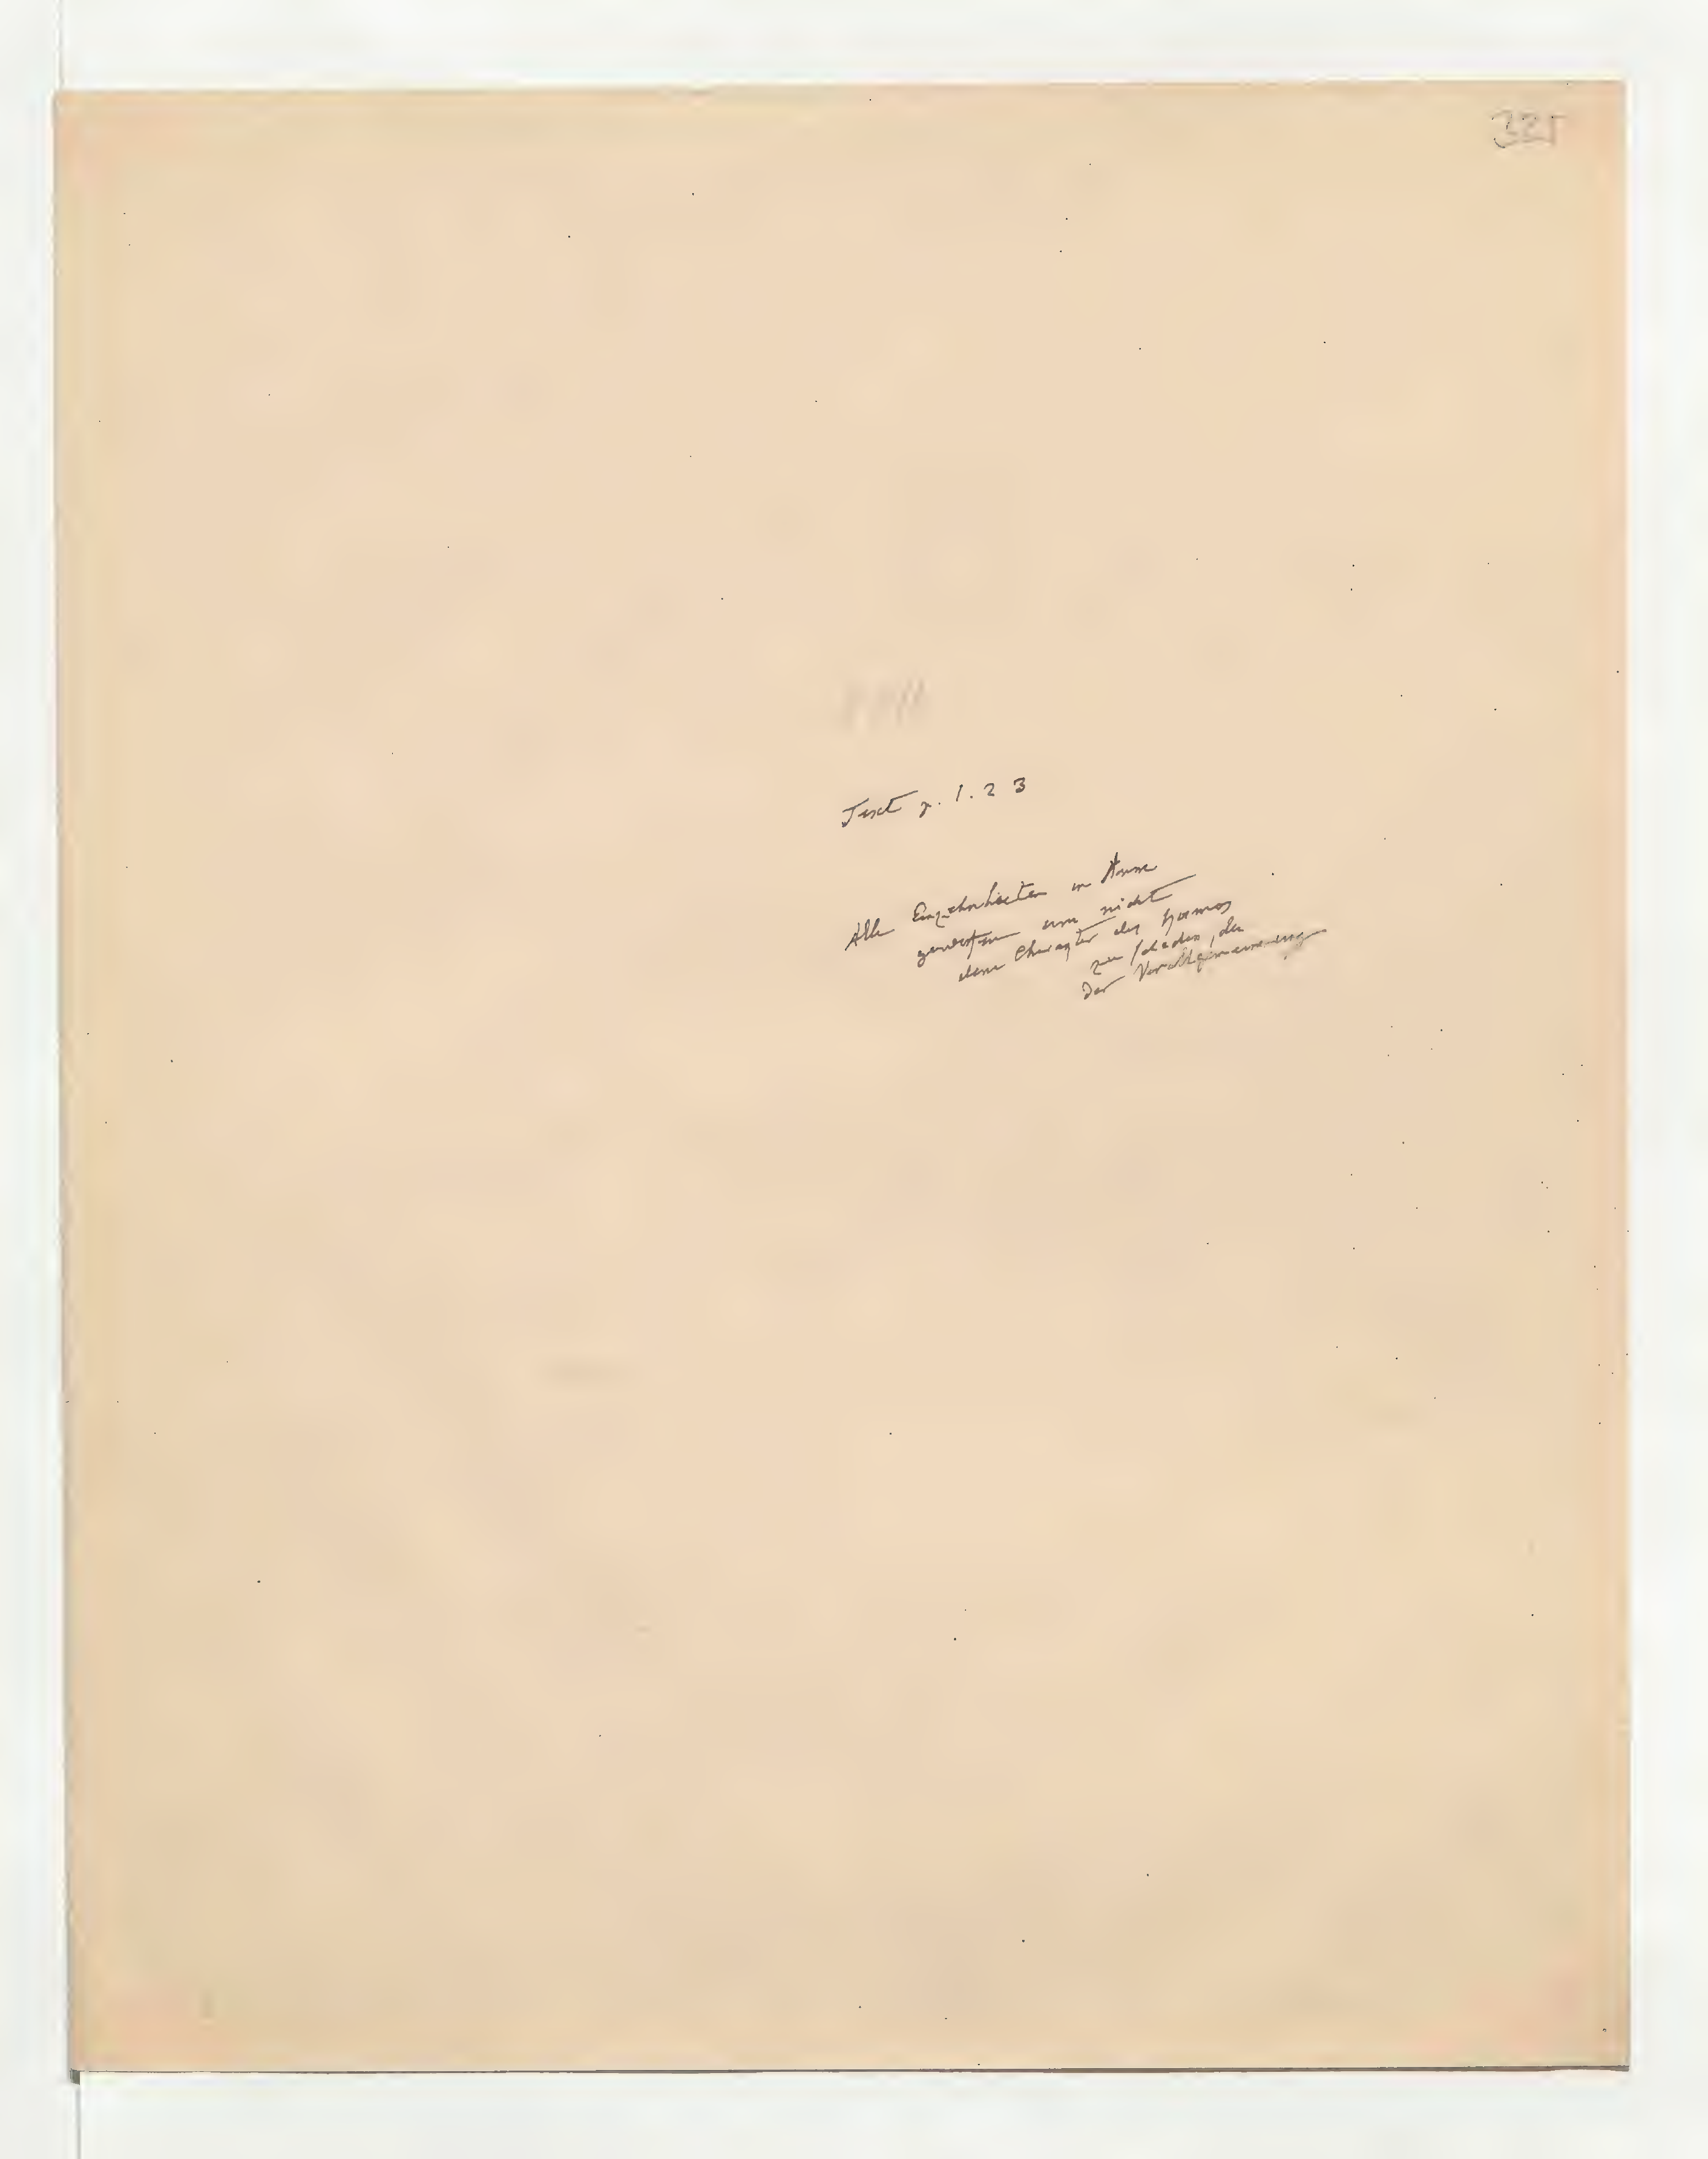 325
Text p. 1. 2 3
Alle Einzelnheiten in Anm
geworfen um nicht
dem Charakter des Kosmos
zu schaden, der
der Verallgemeinerung